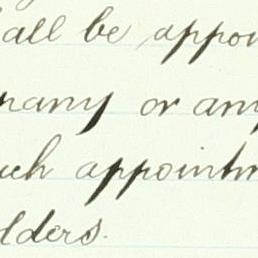 all be appoi
pany or any
uch appointm
lders.